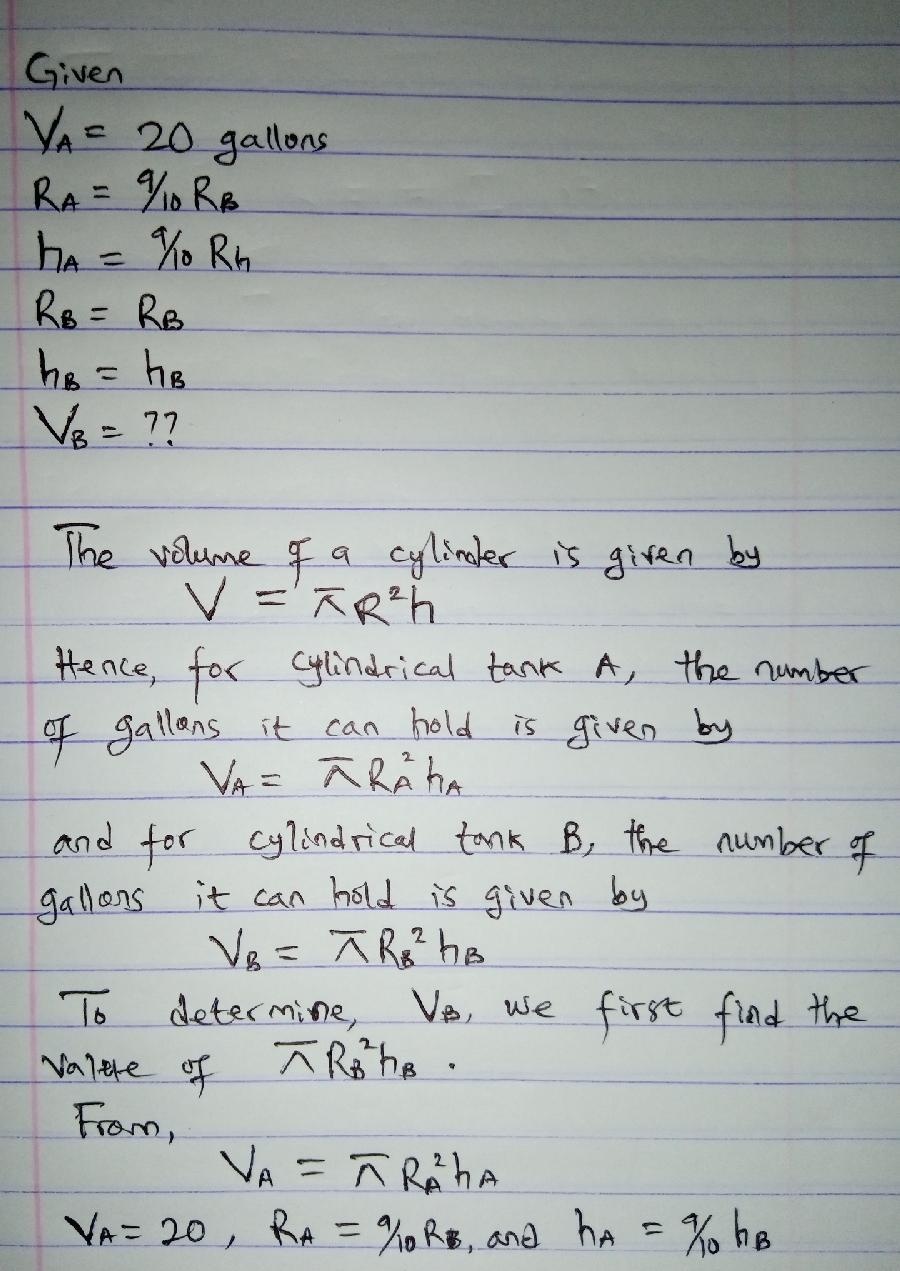 Given
V_A = 20 gallons
R_A = 9/10 R_B
h_A = 9/10 R_h
R_B = R_B
h_B = h_B
V_B = ??
The volume of a cylinder is given by
V = πR²h
Hence, for cylindrical tank A, the number
of gallons it can hold is given by
V_A = πR_A²h_A
and for cylindrical tank B, the number of
gallons it can hold is given by
V_B = πR_B²h_B
To determine, V_B, we first find the
Value of πR_B²h_B.
From,
V_A = πR_A²h_A
V_A = 20, R_A = 9/10 R_B, and h_A = 9/10 h_B